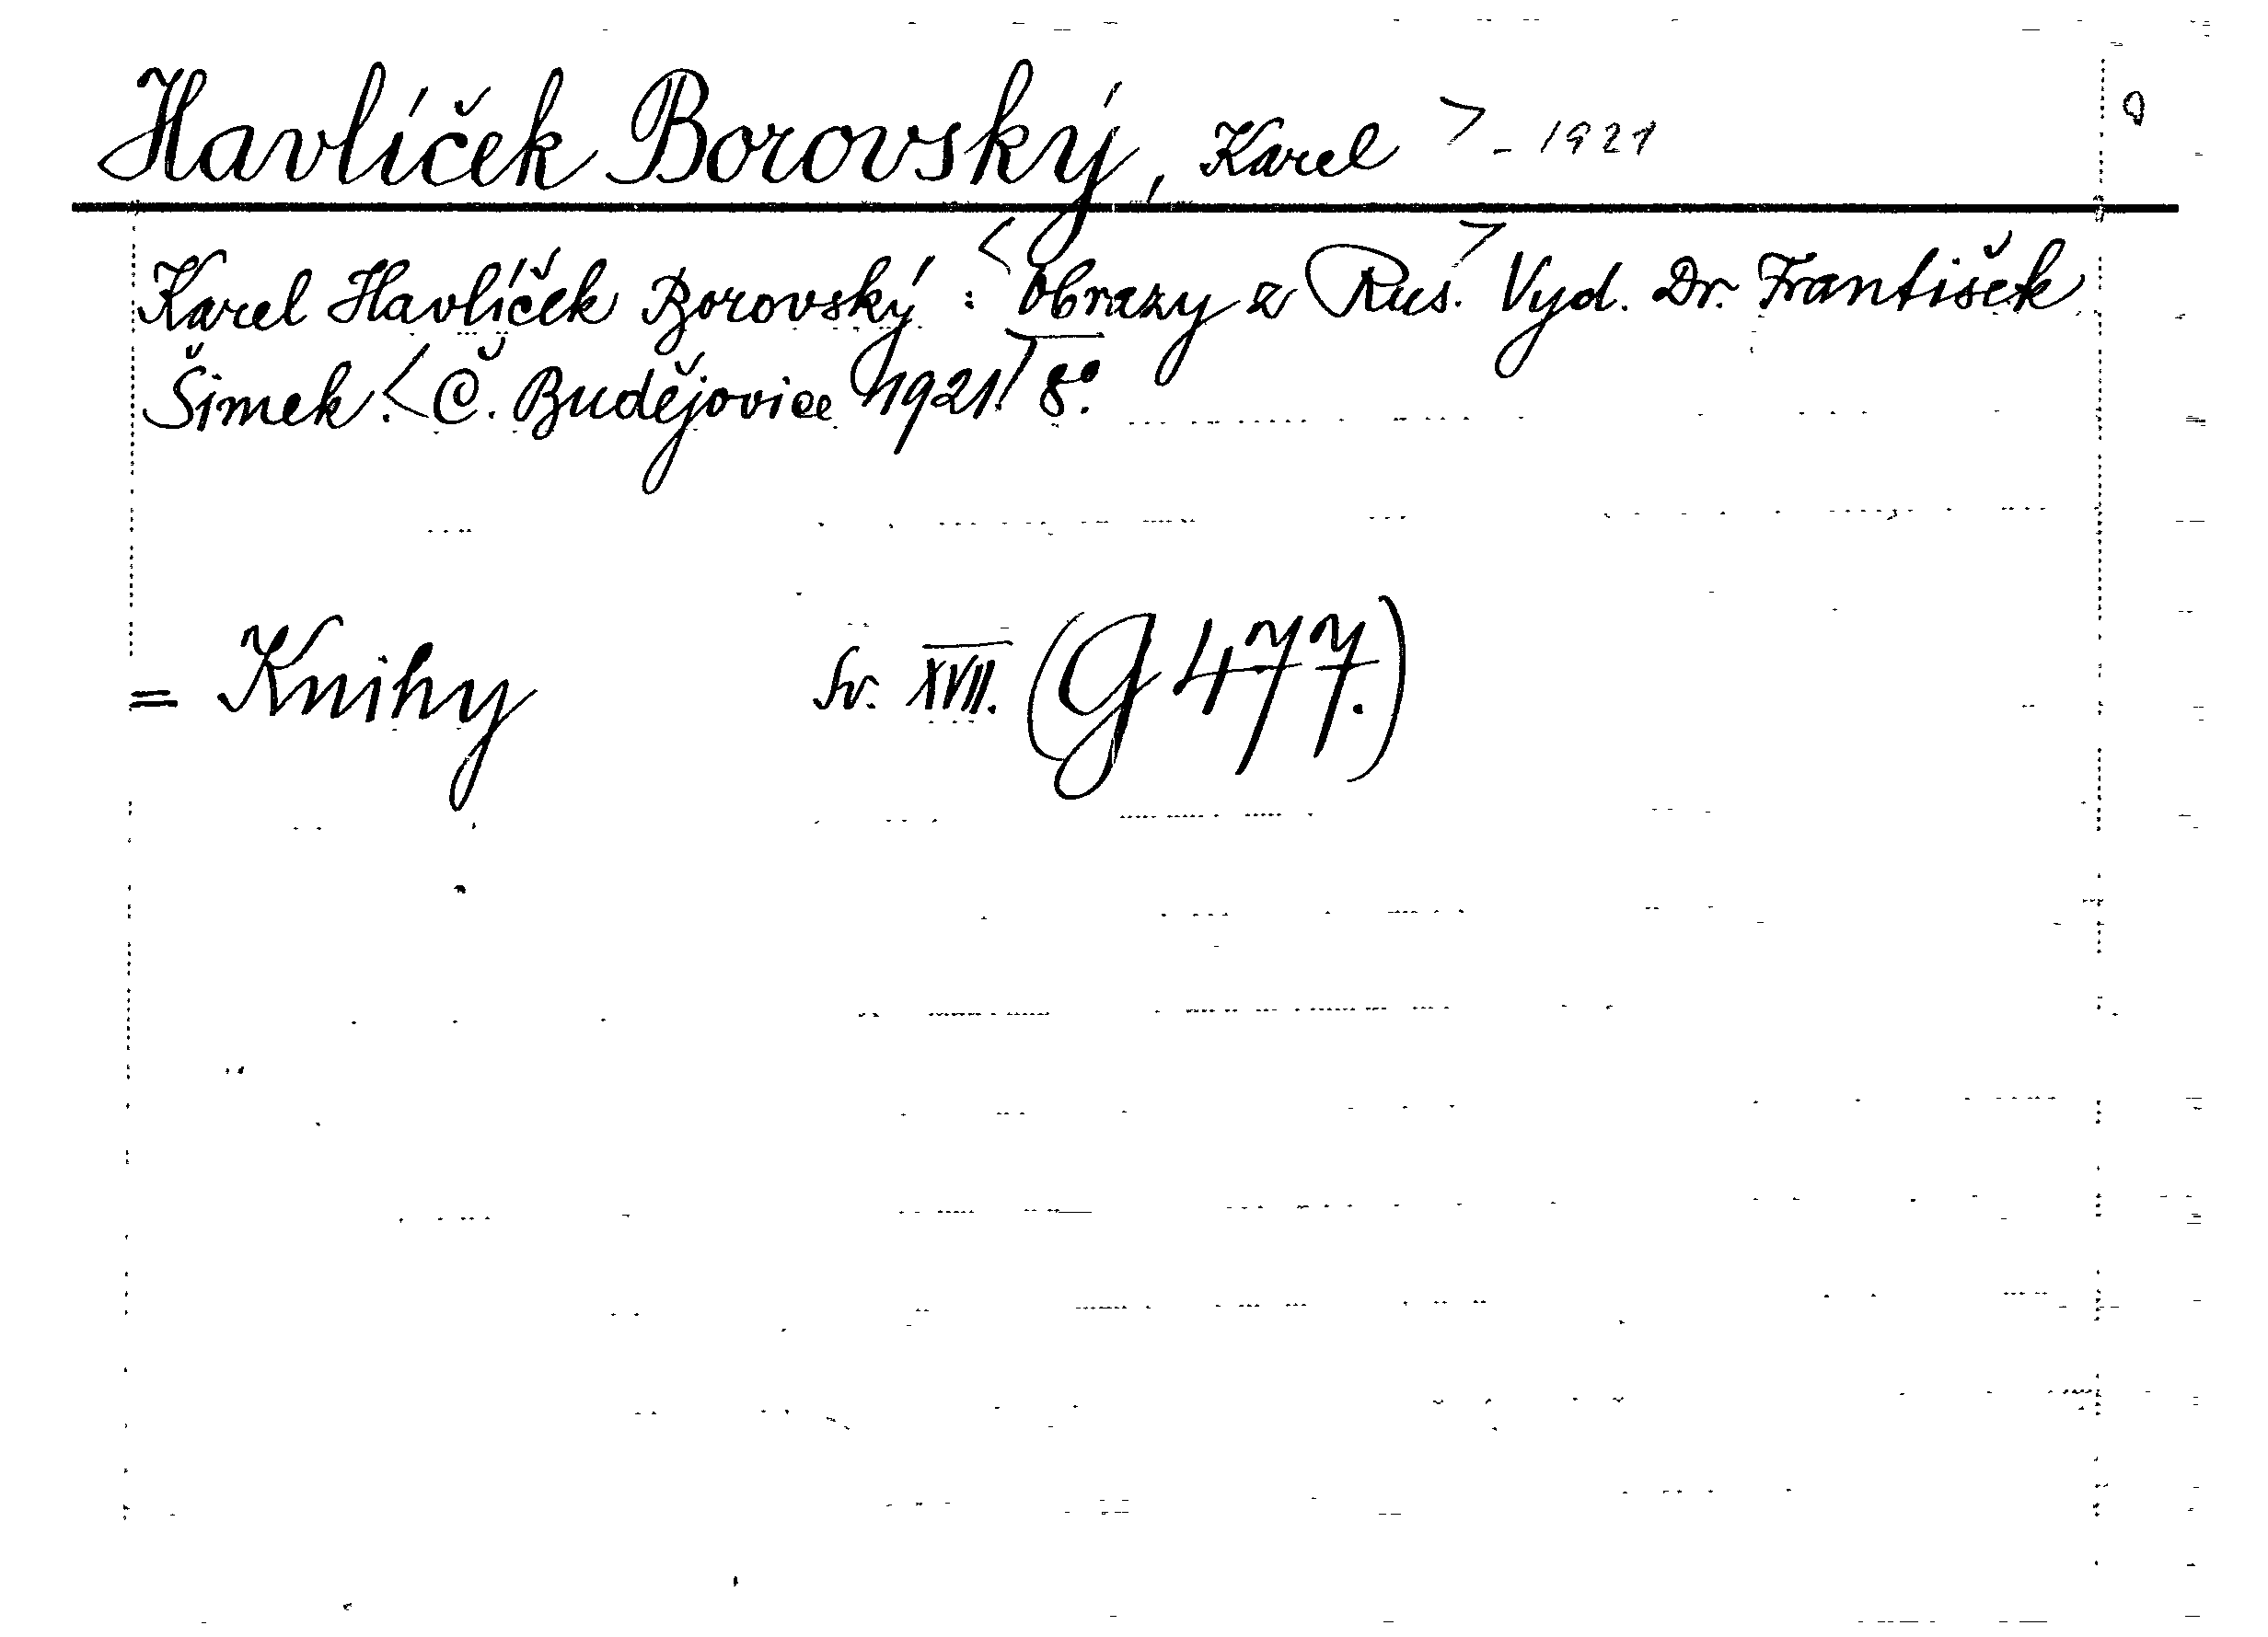 Havlíček Borovský, Karel > - 1921
Karel Havlíček Borovský : <Obrazy z Rus.> Vyd. Dr. František
Šimek. <Č. Budějovice 1921.> 8°.
= Knihy sv. XVII. (G 477.)